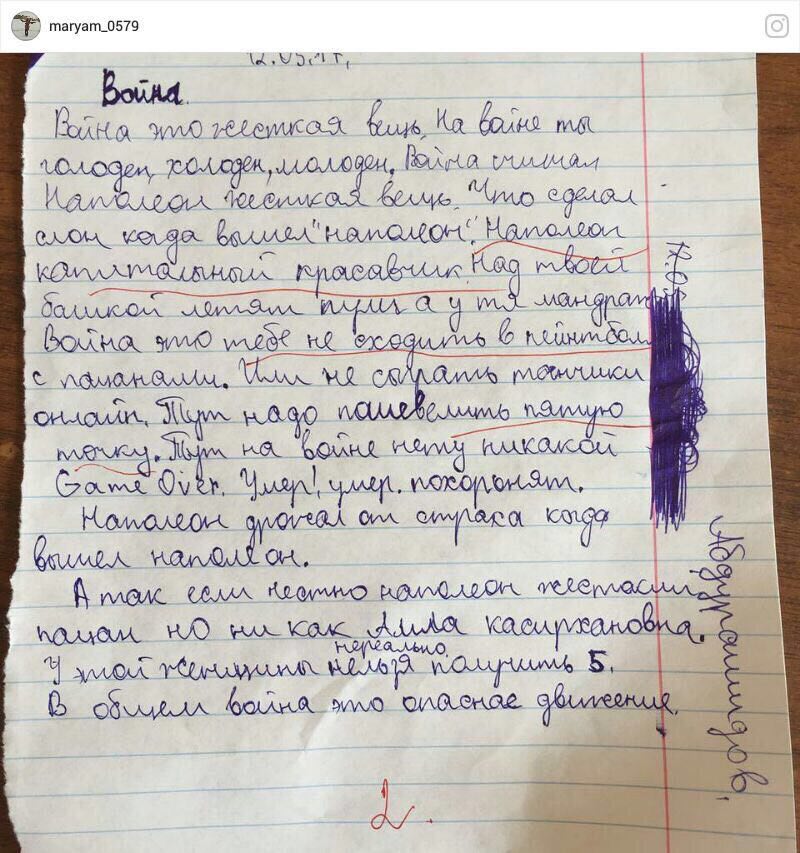 maryam_0579
12.05.17г.
Война.
Война это жесткая вещь. На войне ты
голоден, холоден, молоден. Война считал
Наполеон жесткая вещь. Что сделал
слон когда вышел "наполеон". Наполеон
капитальный красавчик. Над твоей
башкой летят пули а у тя мандраж
Война это тебе не сходить в пейнтбол
с пацанами. Или не сыграть танчики
онлайн. Тут надо пошевелить пятую
точку. Тут на войне нету никакой
Game Over. Умер! умер. похоронят.
Наполеон дрожал от страха когда
вышел наполеон.
А так если честно наполеон жестокий
пацан но ни как Алла касирхановна.
нереально
У этой женщины нельзя получить 5.
В общем война это опаснае движение.
Абдурашидов.
2.